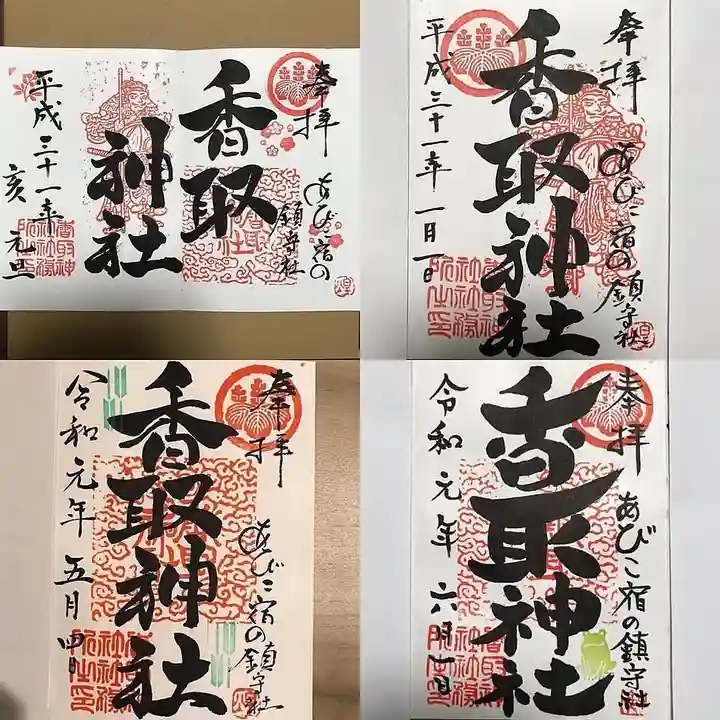 奉拝
あびこ宿の
鎮守社
香取
神社
平成三十一年
亥 元旦
奉拝
あびこ宿の鎮守社
香取神社
平成三十一年一月一日
香取神
社社務
所之印
奉拝
あびこ宿の鎮守社
香取神社
令和元年五月四日
奉拝
あびこ宿の鎮守社
香取神社
令和元年六月七日